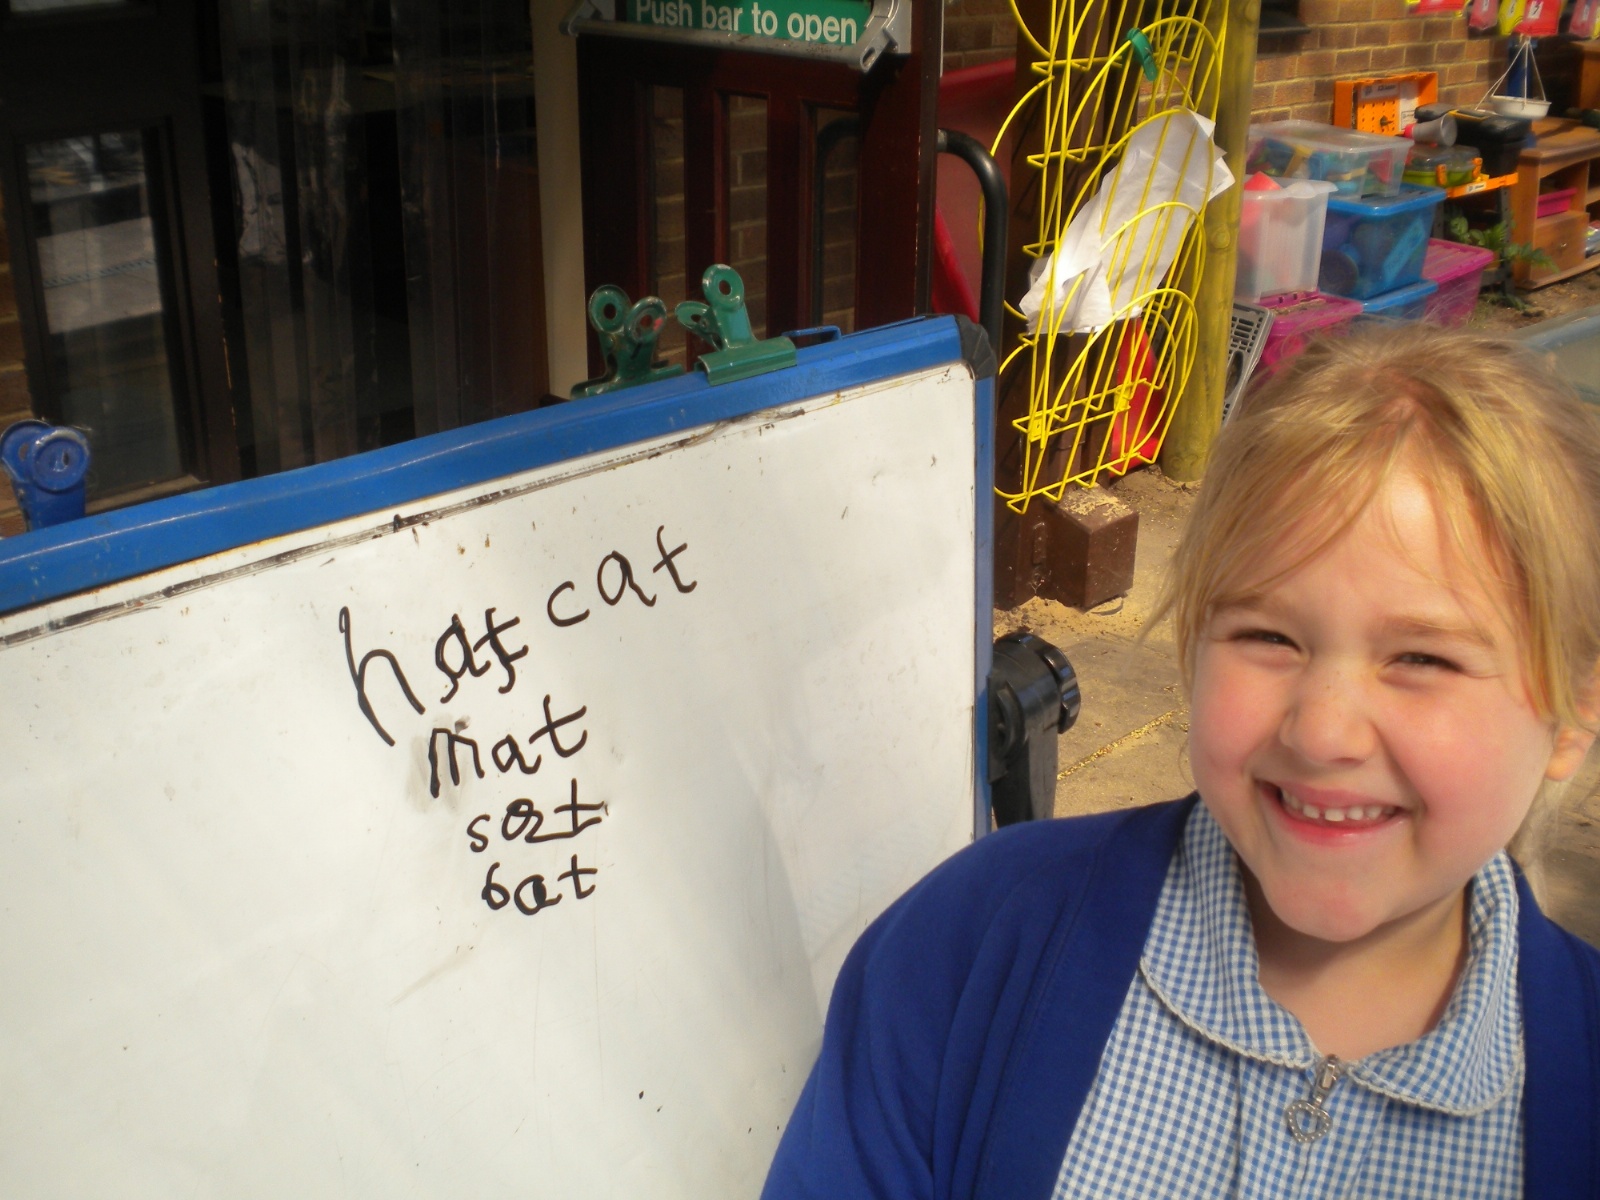 Push bar to open
hat cat
mat
sat
bat